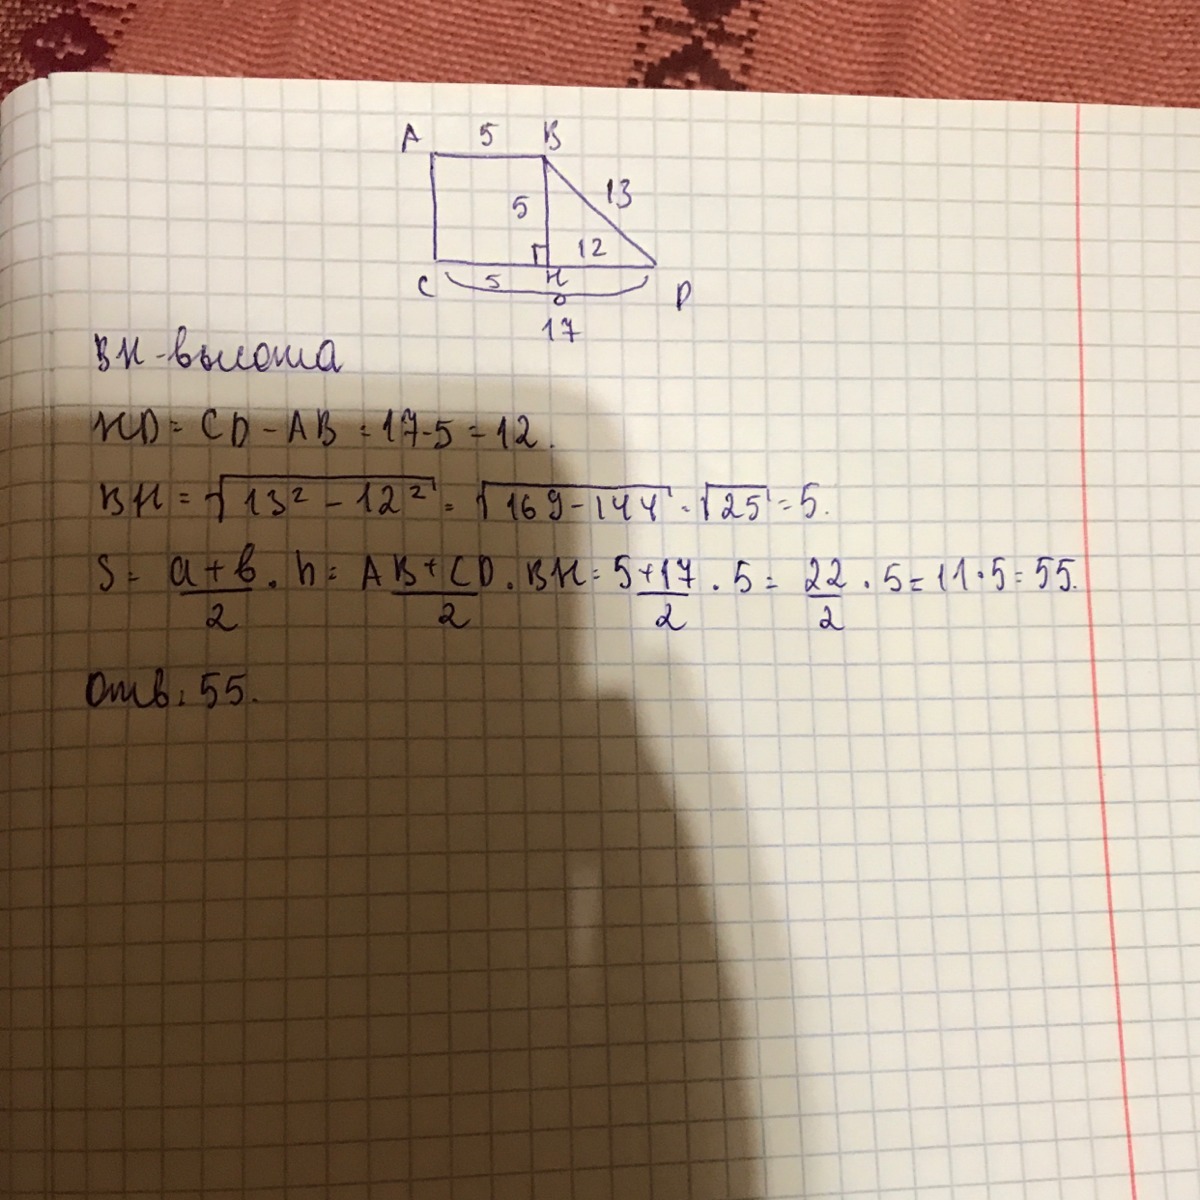 A 5 B
5 13
12
C 5 H D
17
BH - высота
HD = CD - AB = 17 - 5 = 12.
BH = √13² - 12² = √169 - 144 = √25 = 5.
S = a+b/2 · h = AB+CD/2 · BH = 5+17/2 · 5 = 22/2 · 5 = 11 · 5 = 55.
Отв: 55.